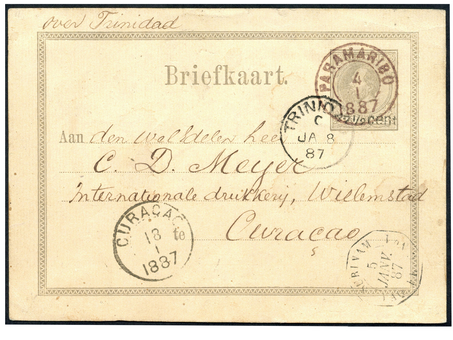 over Trinidad
Briefkaart.
PARAMARIBO
4
1
1887
2½ cent
TRINIDAD
C
JA 8
87
Aan den Weledelen heer
C. D. Meyer
Internationale drukkerij, Willemstad
Curaçao
CURAÇAO
18
1
1887
5
JANV.
87